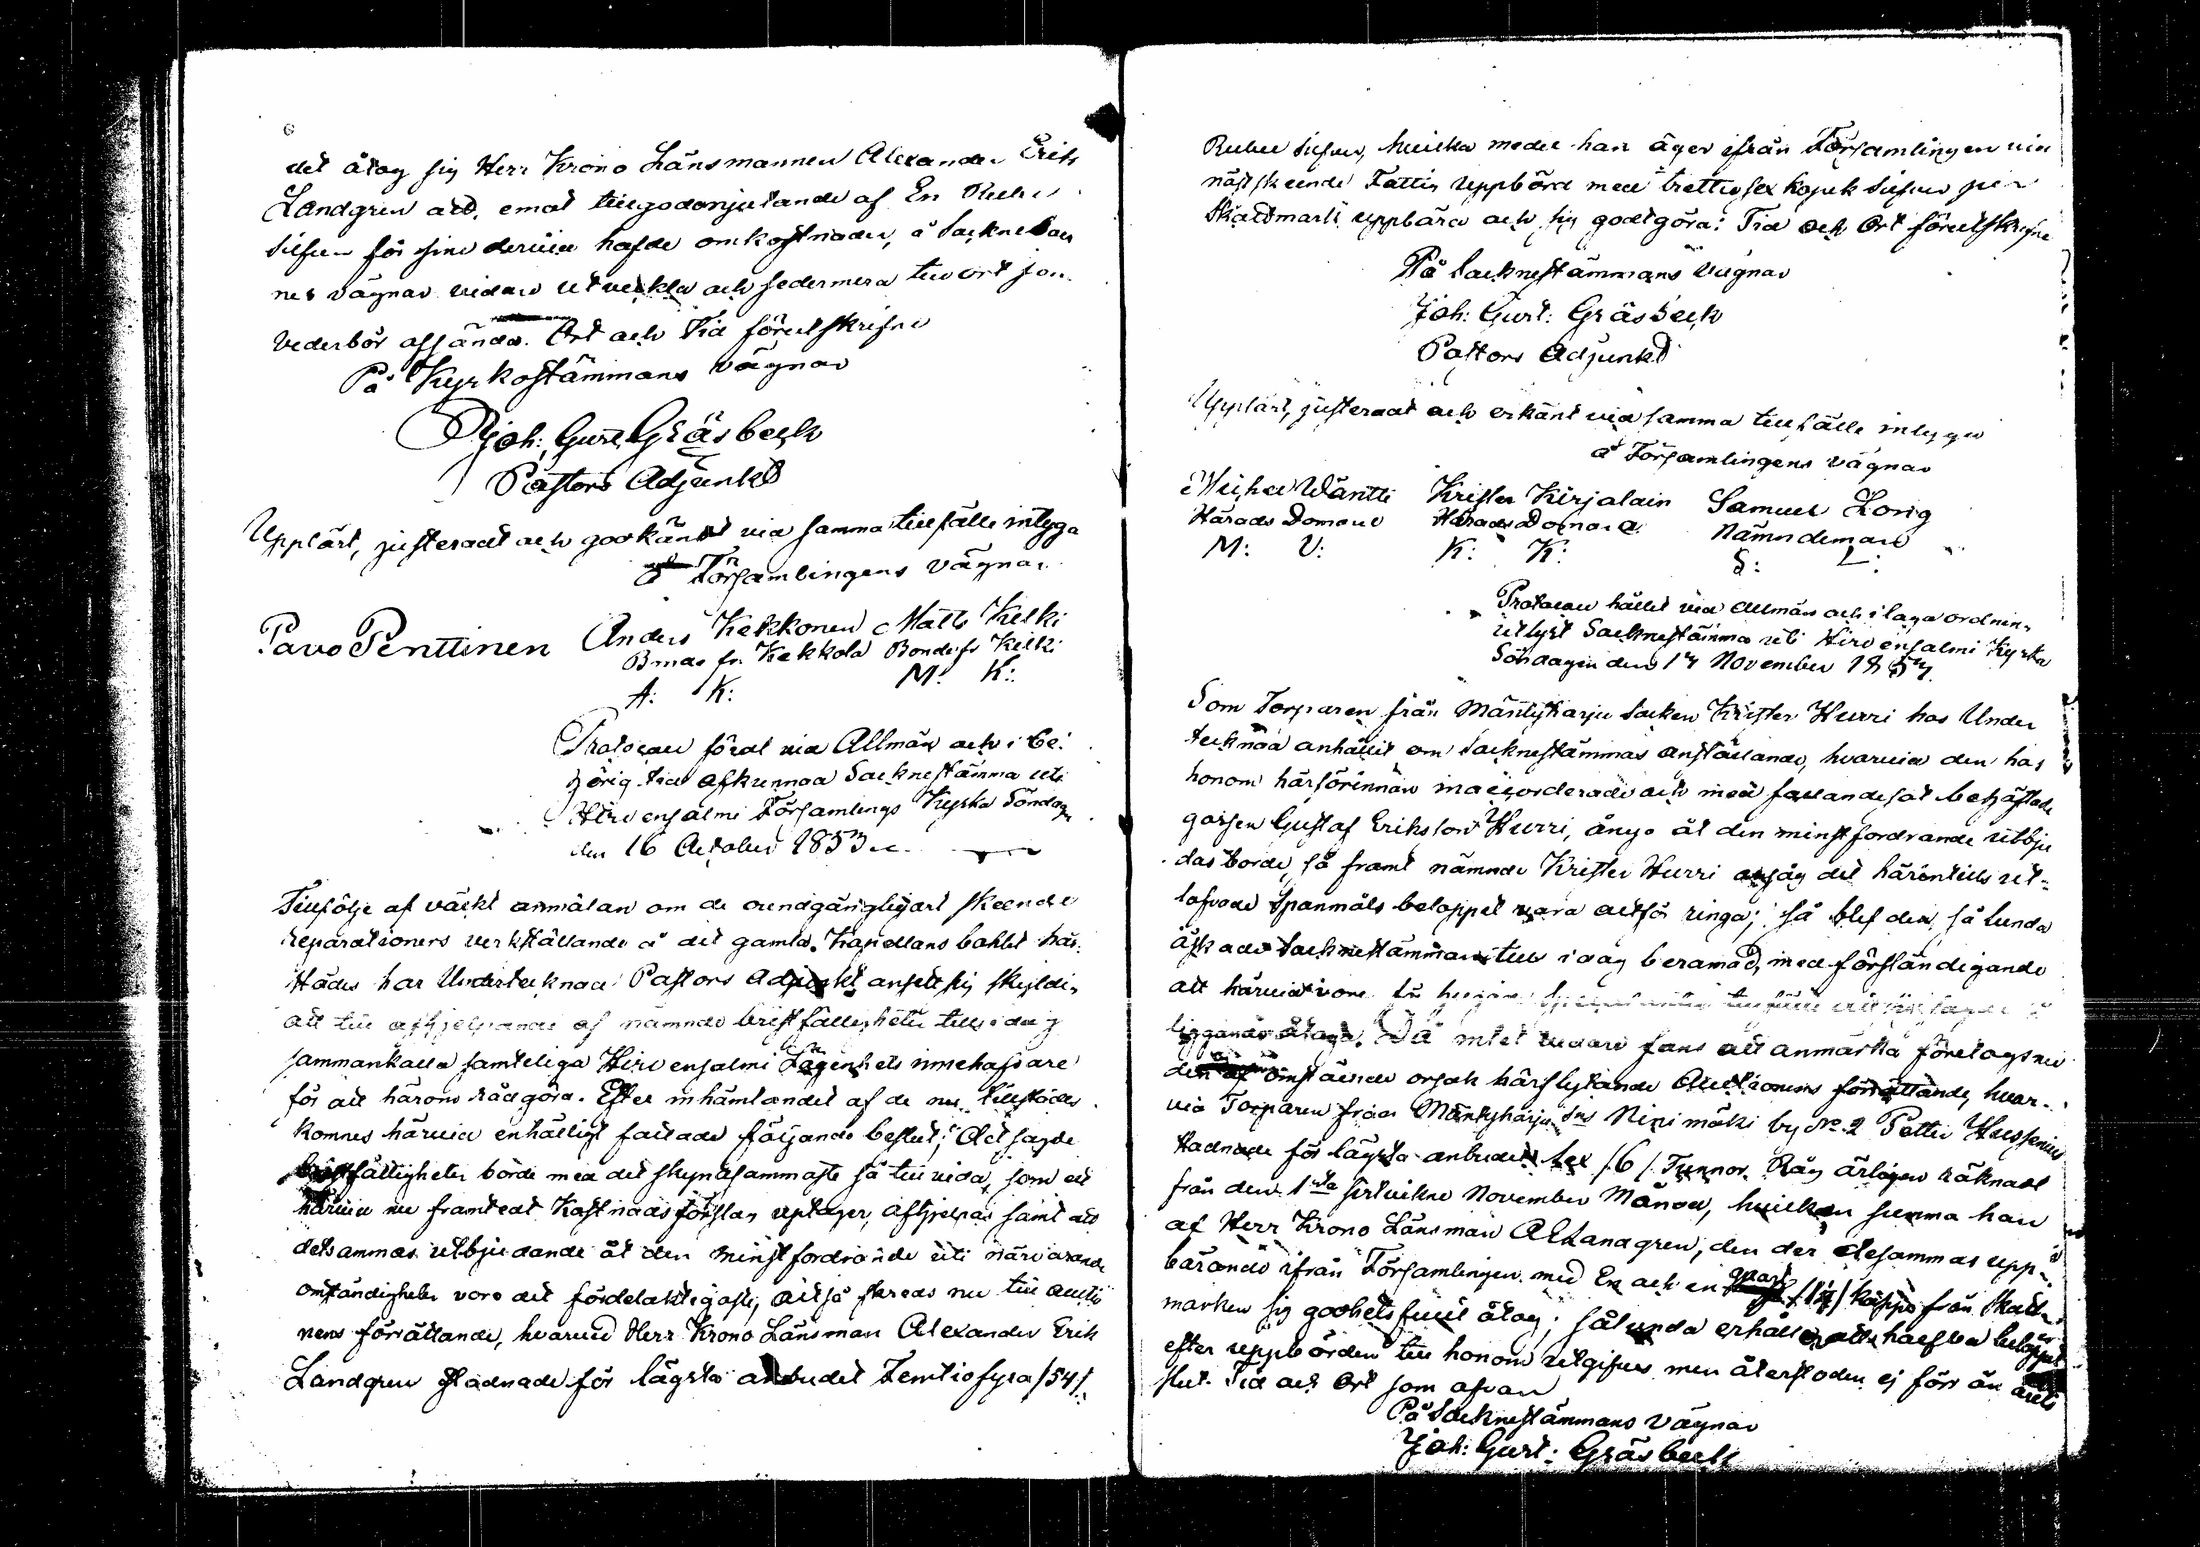 6
det åtog sig Herr Krono Länsmannen Alexander Erik
Landgren att, emot tillgodonjutande af En Rubel
Silfver för sine dervid hafde omkostnader, å Socknebor
nes vägnar vidare utverkla och sedermera till ort som
vederbör afsända. Ort och Tid förutskrifne
På Kyrkostämmans vägnar
Joh: Gust: Gräsbeck
Pastors Adjunkt
Uppläst, justeradt och godkändt vid samma tillfälle intyga
å Församlingens vägnar
Pavo Penttinen Anders Kekkonen Matts Kelki
Bonde fr. Kekkola Bonde fr Kelki
A: K: M: K:
Protocoll fördt vid Allmän och i be
hörig tid afkunnad Socknestämma uti
Hirvensalmi Församlings Kyrka Söndagen
den 16 October 1853
Tillfölje af väckt anmälan om de oundgängligast skeende
reparationers verkställande å det gamla Kapellans bohlet här
städes har Undertecknad Pastors Adjunkt ansett sig skyldig
att till afhjelpande af nämnde bristfällighet till i dag
sammankalla samteliga Hirvensalmi Lägenhets innehafvare
för att härom rådgöra. Efter inhämtandet af de nu tillstädes
komnes härvid enhälligt fattade följande beslut; Att sagde
bristfälligheter borde med det skyndsammaste så till vida, som ett
härvid nu framtedt Kostnads förslag upptager, afhjelpas samt att
detsammas utbjudande åt den minstfordrande uti närvarande
omständigheter vore det fördelaktigaste, altså skreds nu till auctio
nens förrättande, hvarvid Herr Krono Länsman Alexander Erik
Landgren stadnade för lägsta anbudet Femtiofyra /54/
Rubel Silfver, hvilka medel han äger ifrån Församlingen vid
näst skeende Fattig uppbörd med trettiosex kopek Silfver per
Skattmark uppbära och sig godtgöra: Tid och Ort förutskrifne
På Socknestämmans vägnar
Joh: Gust: Gräsbeck
Pastors Adjunkt
Uppläst, justeradt och erkänt vid samma tillfälle intyga
å Församlingens vägnar
Michel Wäntti Krister Kirjalain Samuel Lorig
Härads Domare Härads Domare Nämndeman
M: V: K: K: S: L:
Protocoll hållit vid Allmän och i laga ordning
utlyst Socknestämma uti Hirvensalmi Kyrka
Söndagen den 14 November 1853
Som Torparen från Mäntyharju Socken Krister Hurri hos Under
tecknad anhållit om Socknestämmas anställande, hvarvid den hos
honom härförinnan inackorderade och med fallandesot behäftade
gossen Gustaf Eriksson Hurri, ånyo åt den minstfordrande utbju
das borde, så framt nämnde Krister Hurri ansåg det härintills ut=
lofvade Spanmåls beloppet vara altför ringa; så blef den sålunda
äskade Socknestämman till i dag beramad, med förständigande
att härvid vore
liggande åtaga. Då intet vidare fans att anmärka företogs nu
den af omstående orsak härflytande Auctionens förrättande, hvar-
vid Torparen från Mäntyharju Sns Niinimäki by No 2 Petter Hussenius
stadnade för lägsta anbudet sex /6/ Tunnor Råg årligen räknadt
från den 1sta sistvikne November Månad, hvilken summa han
af Herr Krono Länsman AELandgren, den der detsammas upp-
bärande ifrån Församlingen med En och en qvart /1¼/ kappe från skatt
marken sig godhetsfullt åtog; sålunda erhåller att halfva beloppet
efter uppbörden till honom utgifves men återstoden ej förr än årets
slut. Tid och Ort som ofvan
På Socknestämmans vägnar
Joh: Gust: Gräsbeck